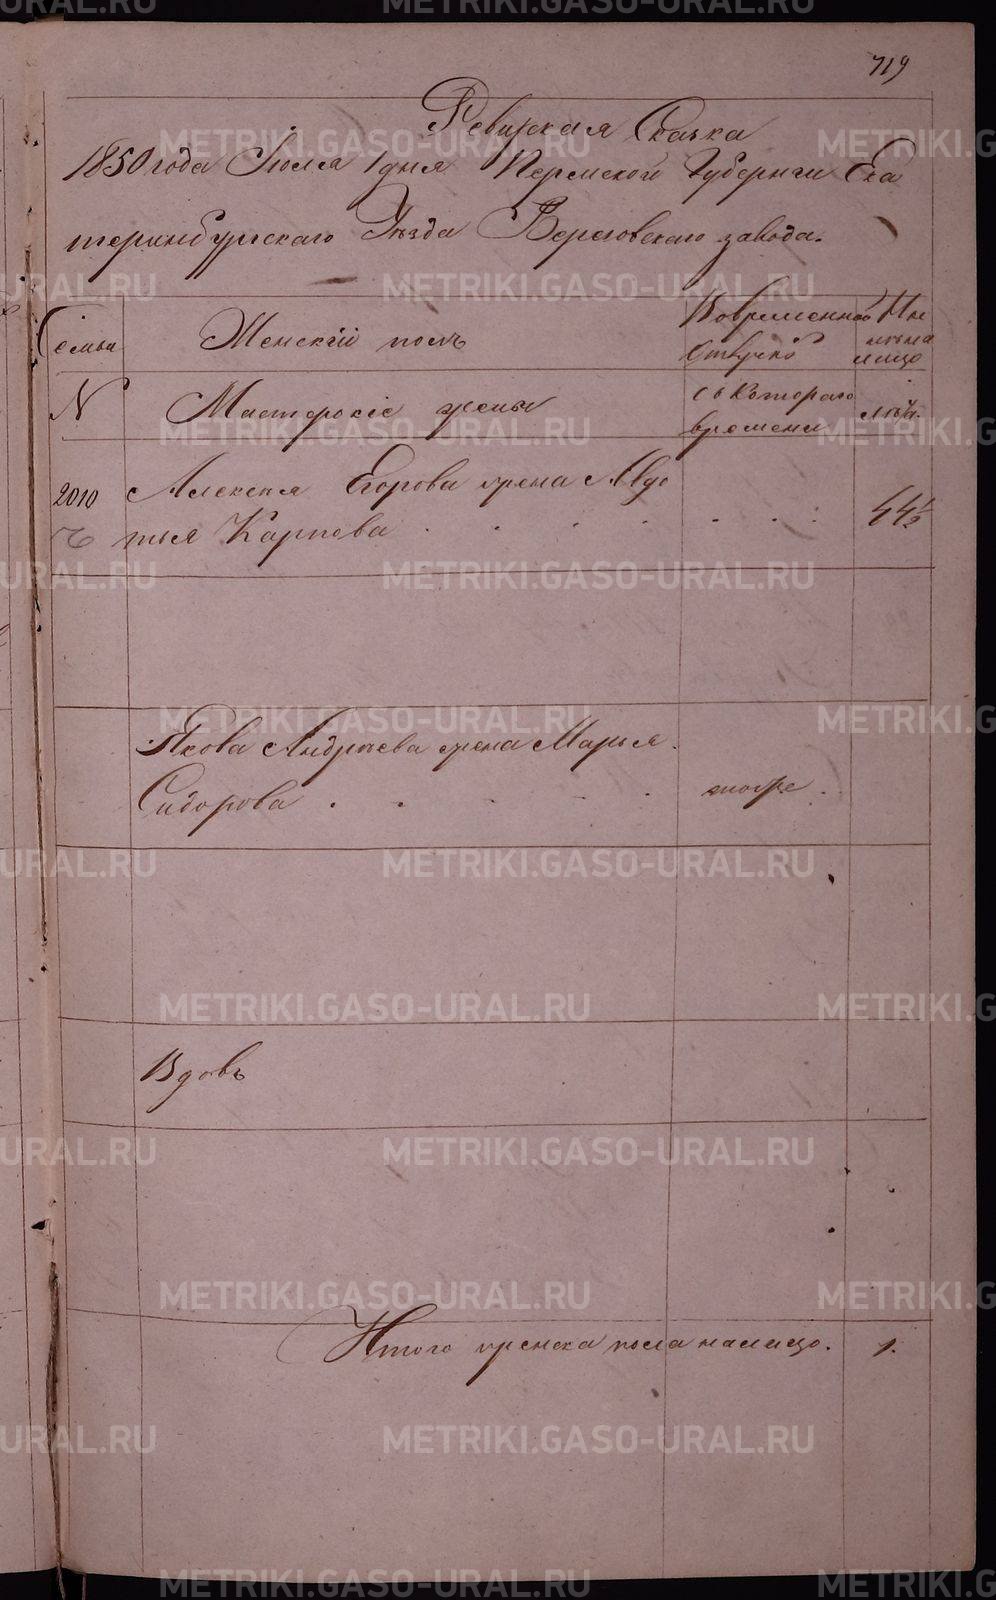 719
Ревизская Сказка
1850 года Июля 1 дня Пермской Губернии Ека
теринбургскаго Уезда Березовскаго завода.
Семьи Женскій полъ Во временной Отлучке Ны не на лицо
N Мастерскіе жены съ котораго времени лета.
2010 Алексея Егорова жена Авдо
тья Карпова . . . . . . 44½
Якова Андреева жена Марья
Сидорова . . . . . тоже .
Вдовъ
Итого женска пола налицо. 1.
METRIKI.GASO-URAL.RU